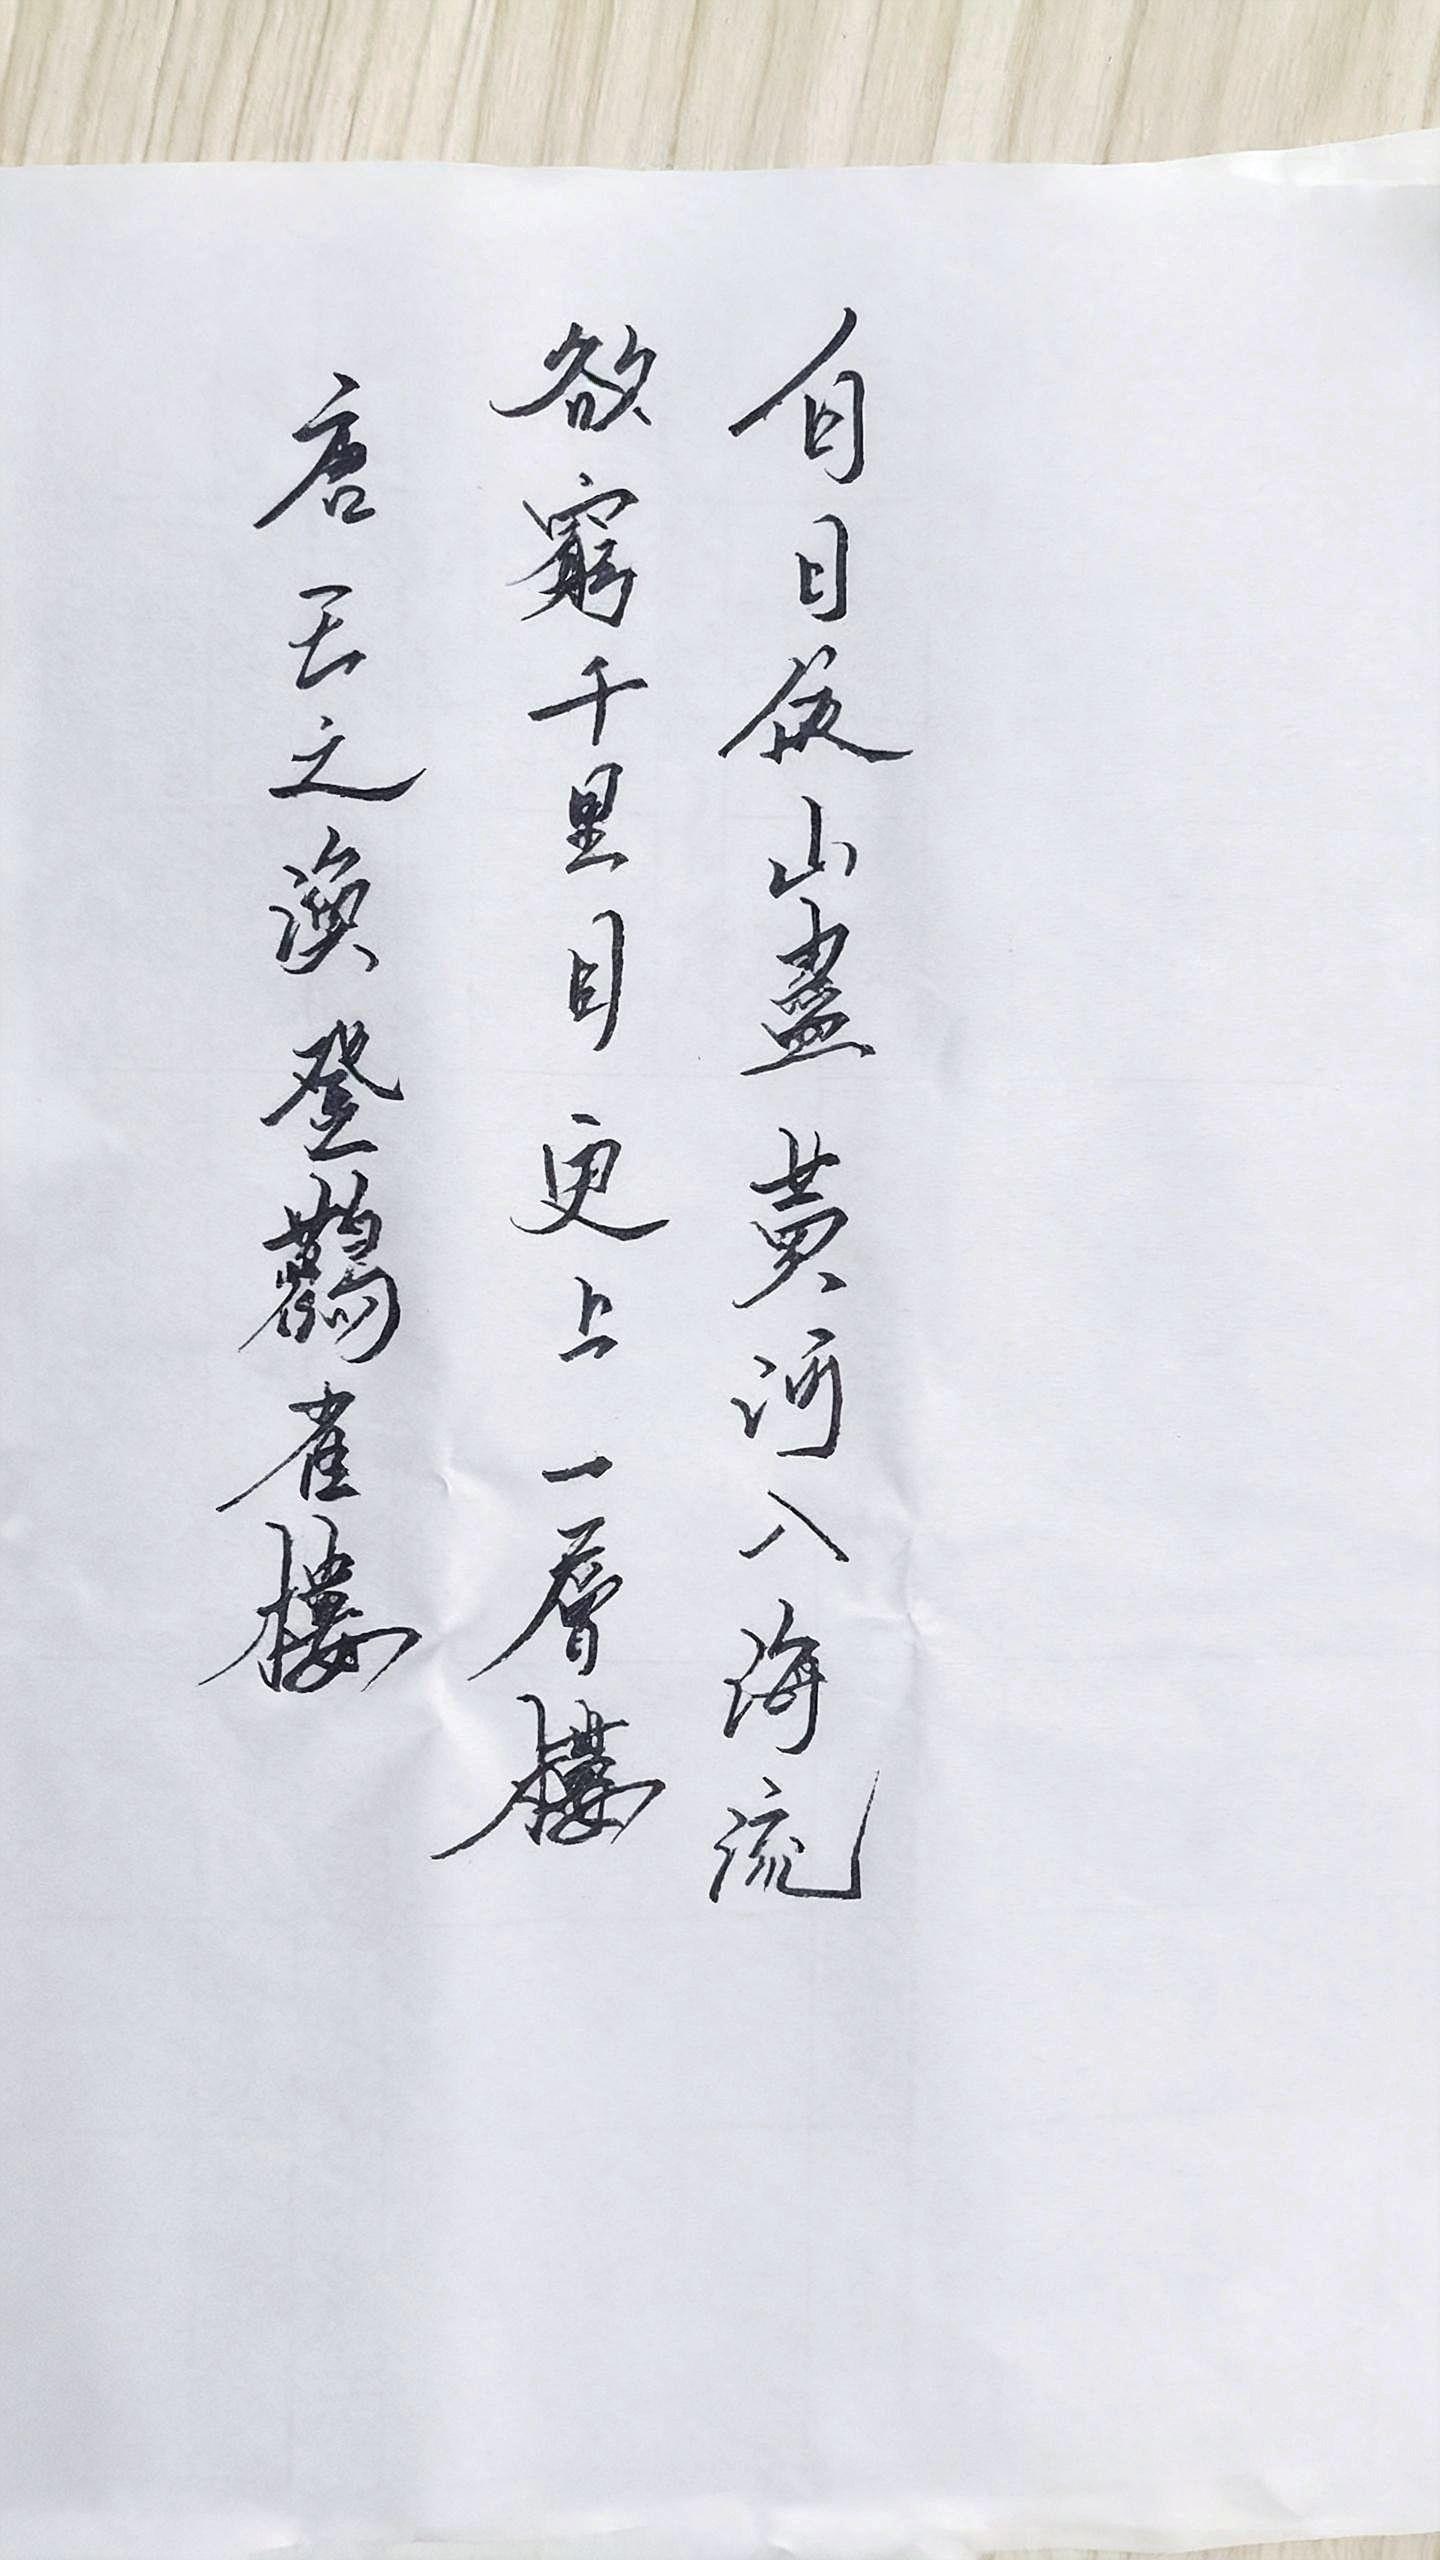 白日依山盡黃河入海流
欲窮千里目更上一層樓
唐王之渙登鸛雀樓